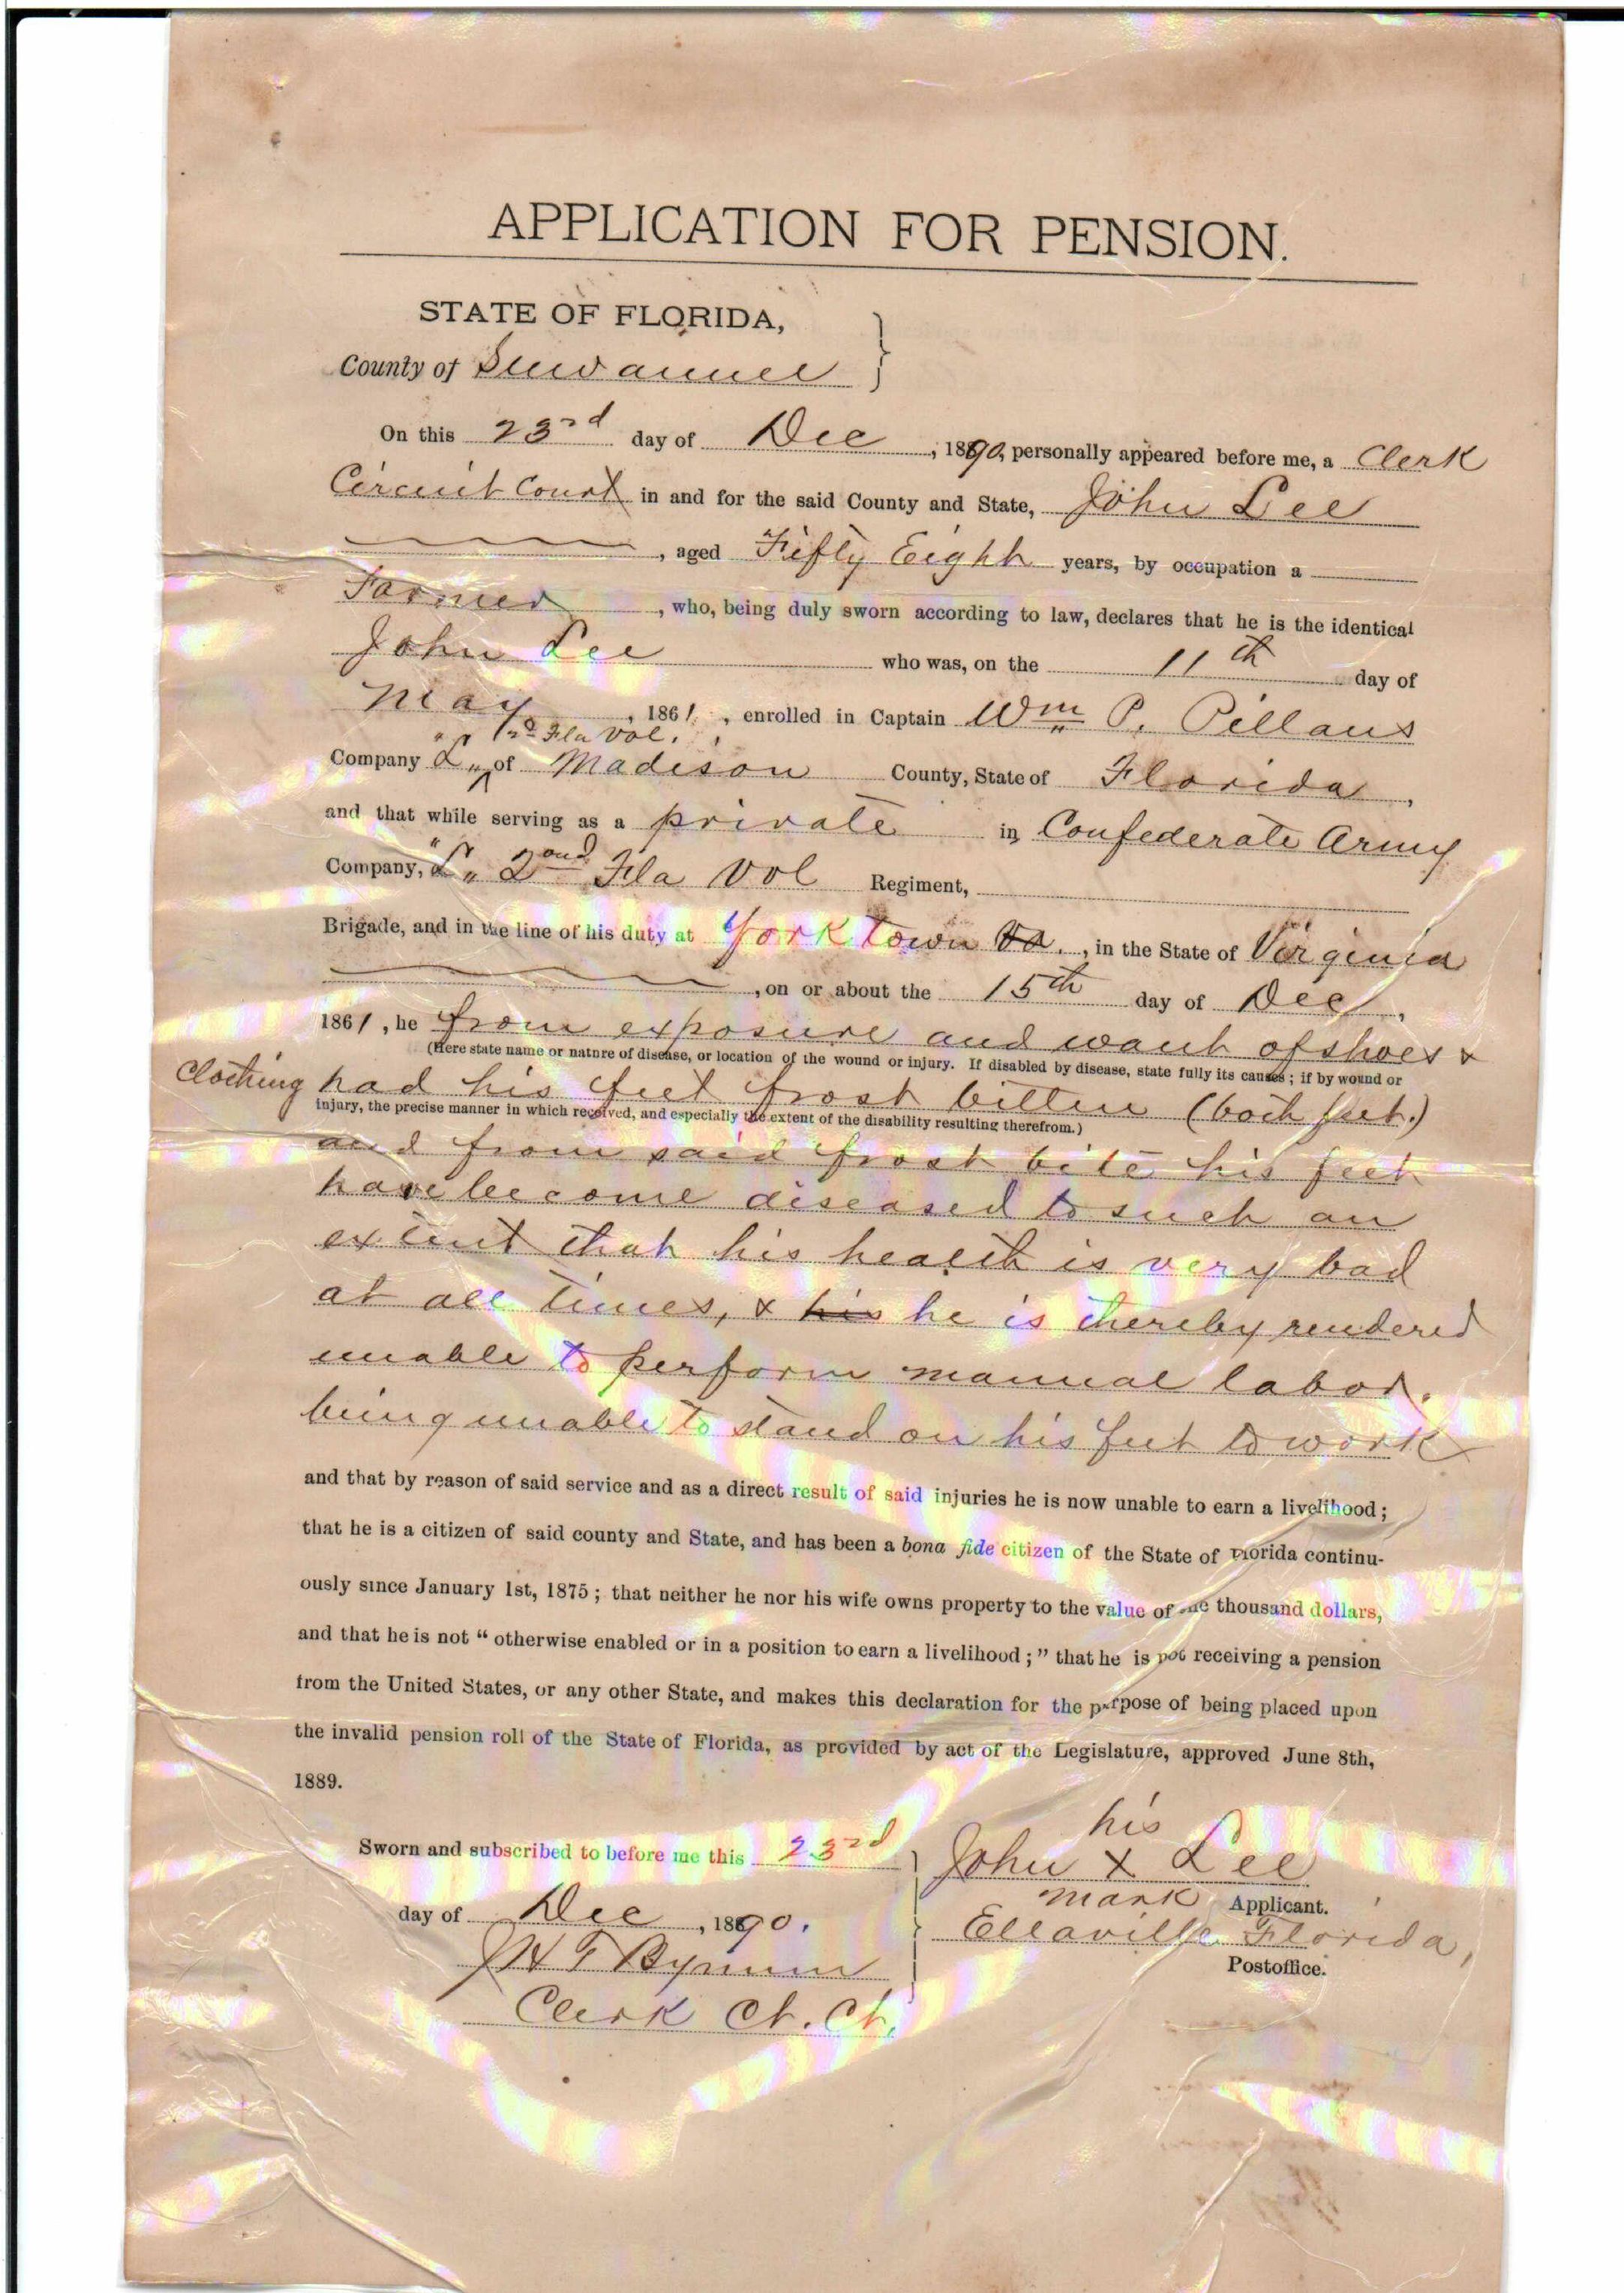 APPLICATION FOR PENSION.
STATE OF FLORIDA,
County of Suwannee
On this 23rd day of Dec, 1890, personally appeared before me, a Clerk
Circuit Court in and for the said County and State, John Lee
, aged Fifty Eight years, by occupation a
Farmer, who, being duly sworn according to law, declares that he is the identical
John Lee who was, on the 11th day of
May, 1861, enrolled in Captain Wm P. Pillans
Fla Vol.
Company "L" of Madison County, State of Florida,
and that while serving as a private in Confederate Army
Company, "L" 2ond Fla Vol Regiment,
Brigade, and in the line of his duty at York town Va., in the State of Virginia
, on or about the 15th day of Dec,
1861, he from exposure and want of shoes &
(Here state name or nature of disease, or location of the wound or injury. If disabled by disease, state fully its causes; if by wound or
Clothing had his feet frost bitten (both feet.)
injury, the precise manner in which received, and especially the extent of the disability resulting therefrom.)
and from said frost bite his feet
have become diseased to such an
extent that his health is very bad
at all times, & his he is thereby rendered
unable to perform manual labor.
being unable to stand on his feet to work
and that by reason of said service and as a direct result of said injuries he is now unable to earn a livelihood;
that he is a citizen of said county and State, and has been a bona fide citizen of the State of Florida continu-
ously since January 1st, 1875; that neither he nor his wife owns property to the value of one thousand dollars,
and that he is not "otherwise enabled or in a position to earn a livelihood;" that he is not receiving a pension
from the United States, or any other State, and makes this declaration for the purpose of being placed upon
the invalid pension roll of the State of Florida, as provided by act of the Legislature, approved June 8th,
1889.
Sworn and subscribed to before me this 23rd
day of Dec, 1890.
Bynum
Clerk Ct. Ct.
his
John X Lee
mark Applicant.
Ellaville Florida,
Postoffice.